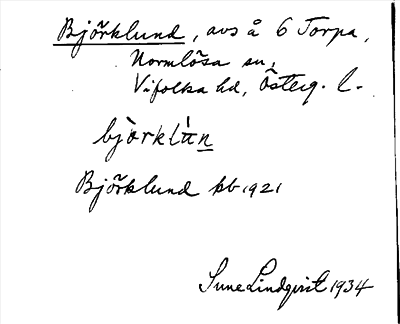 Björklund, avs å 6 Torpa,
Normlösa sn,
Vifolka hd, Österg. l.
bjö̀rklún
Björklund kb 1921
Sune Lindqvist 1934